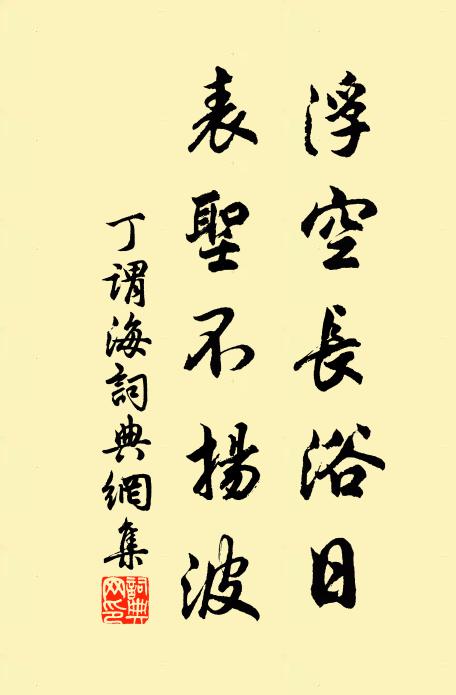 浮空長浴日
表聖不揚波
丁謂海詞典網集
詞典网印